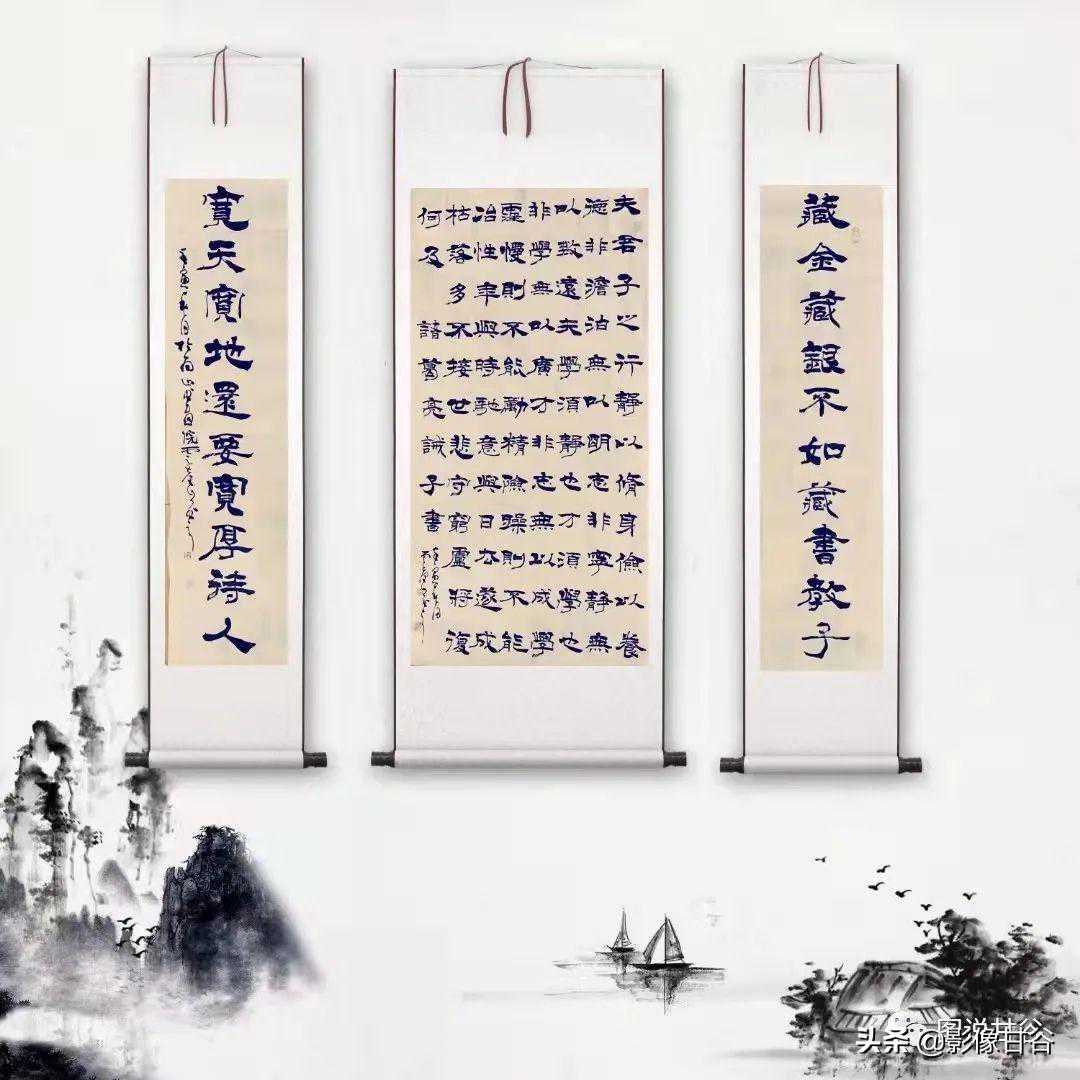 藏金藏銀不如藏書教子
夫君子之行靜以脩身儉以養
德非澹泊無以明志非寧靜無
以致遠夫學須靜也才須學也
非學無以廣才非志無以成學
慢則不能勵精險躁則不能
冶性年與時馳意與日去遂成
枯落多不接世悲守窮廬將復
何及 諸葛亮誡子書
寬天寬地還要寬厚待人
图说甘谷
头条 @影像甘谷